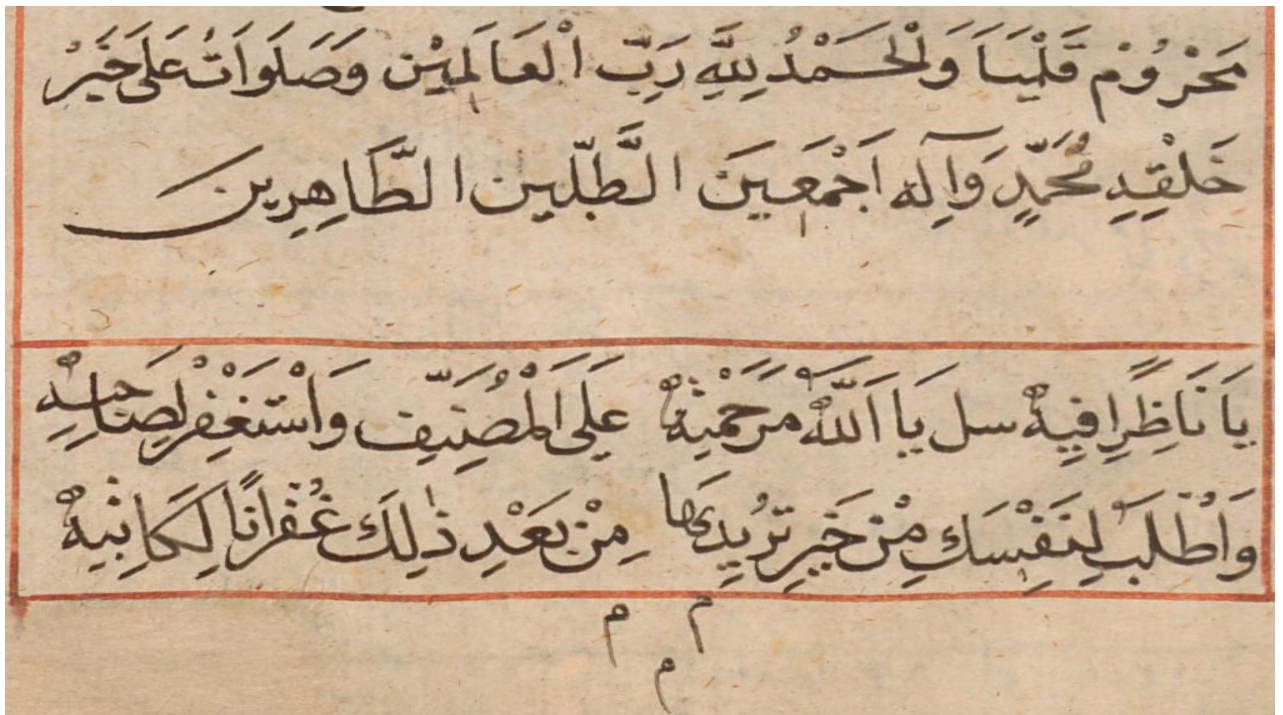 مَخْرُومْ قَلْيَاَ وَلْحَمْدُ لِلَّهِ رَبِّ اْلعَاَلَمِيْن وَصَلَوَاتُ عَلَى خَيْرِ
خَلْقِدِ مُحَمَّدٍ وَآلِه اَجْمَعَينَ الطَّبِّلين الطَّاهِرِين
يَا نَاظِرًا فِيهْ سل يَا اَللّٰهْ مَرَحْمَةْ عَلَى اَلْمُصَنِّفِ وَاْسْتَغْفِرْ لِصَاحِبِهْ
وَاْطْلَبْ لِنَفْسِكَ مِنْ خَيرِ تُرِيدُهَا مِنْ بَعْدِ ذٰلِكَ غُفْرَانًا لِكَاتِبِهْ
م م
م